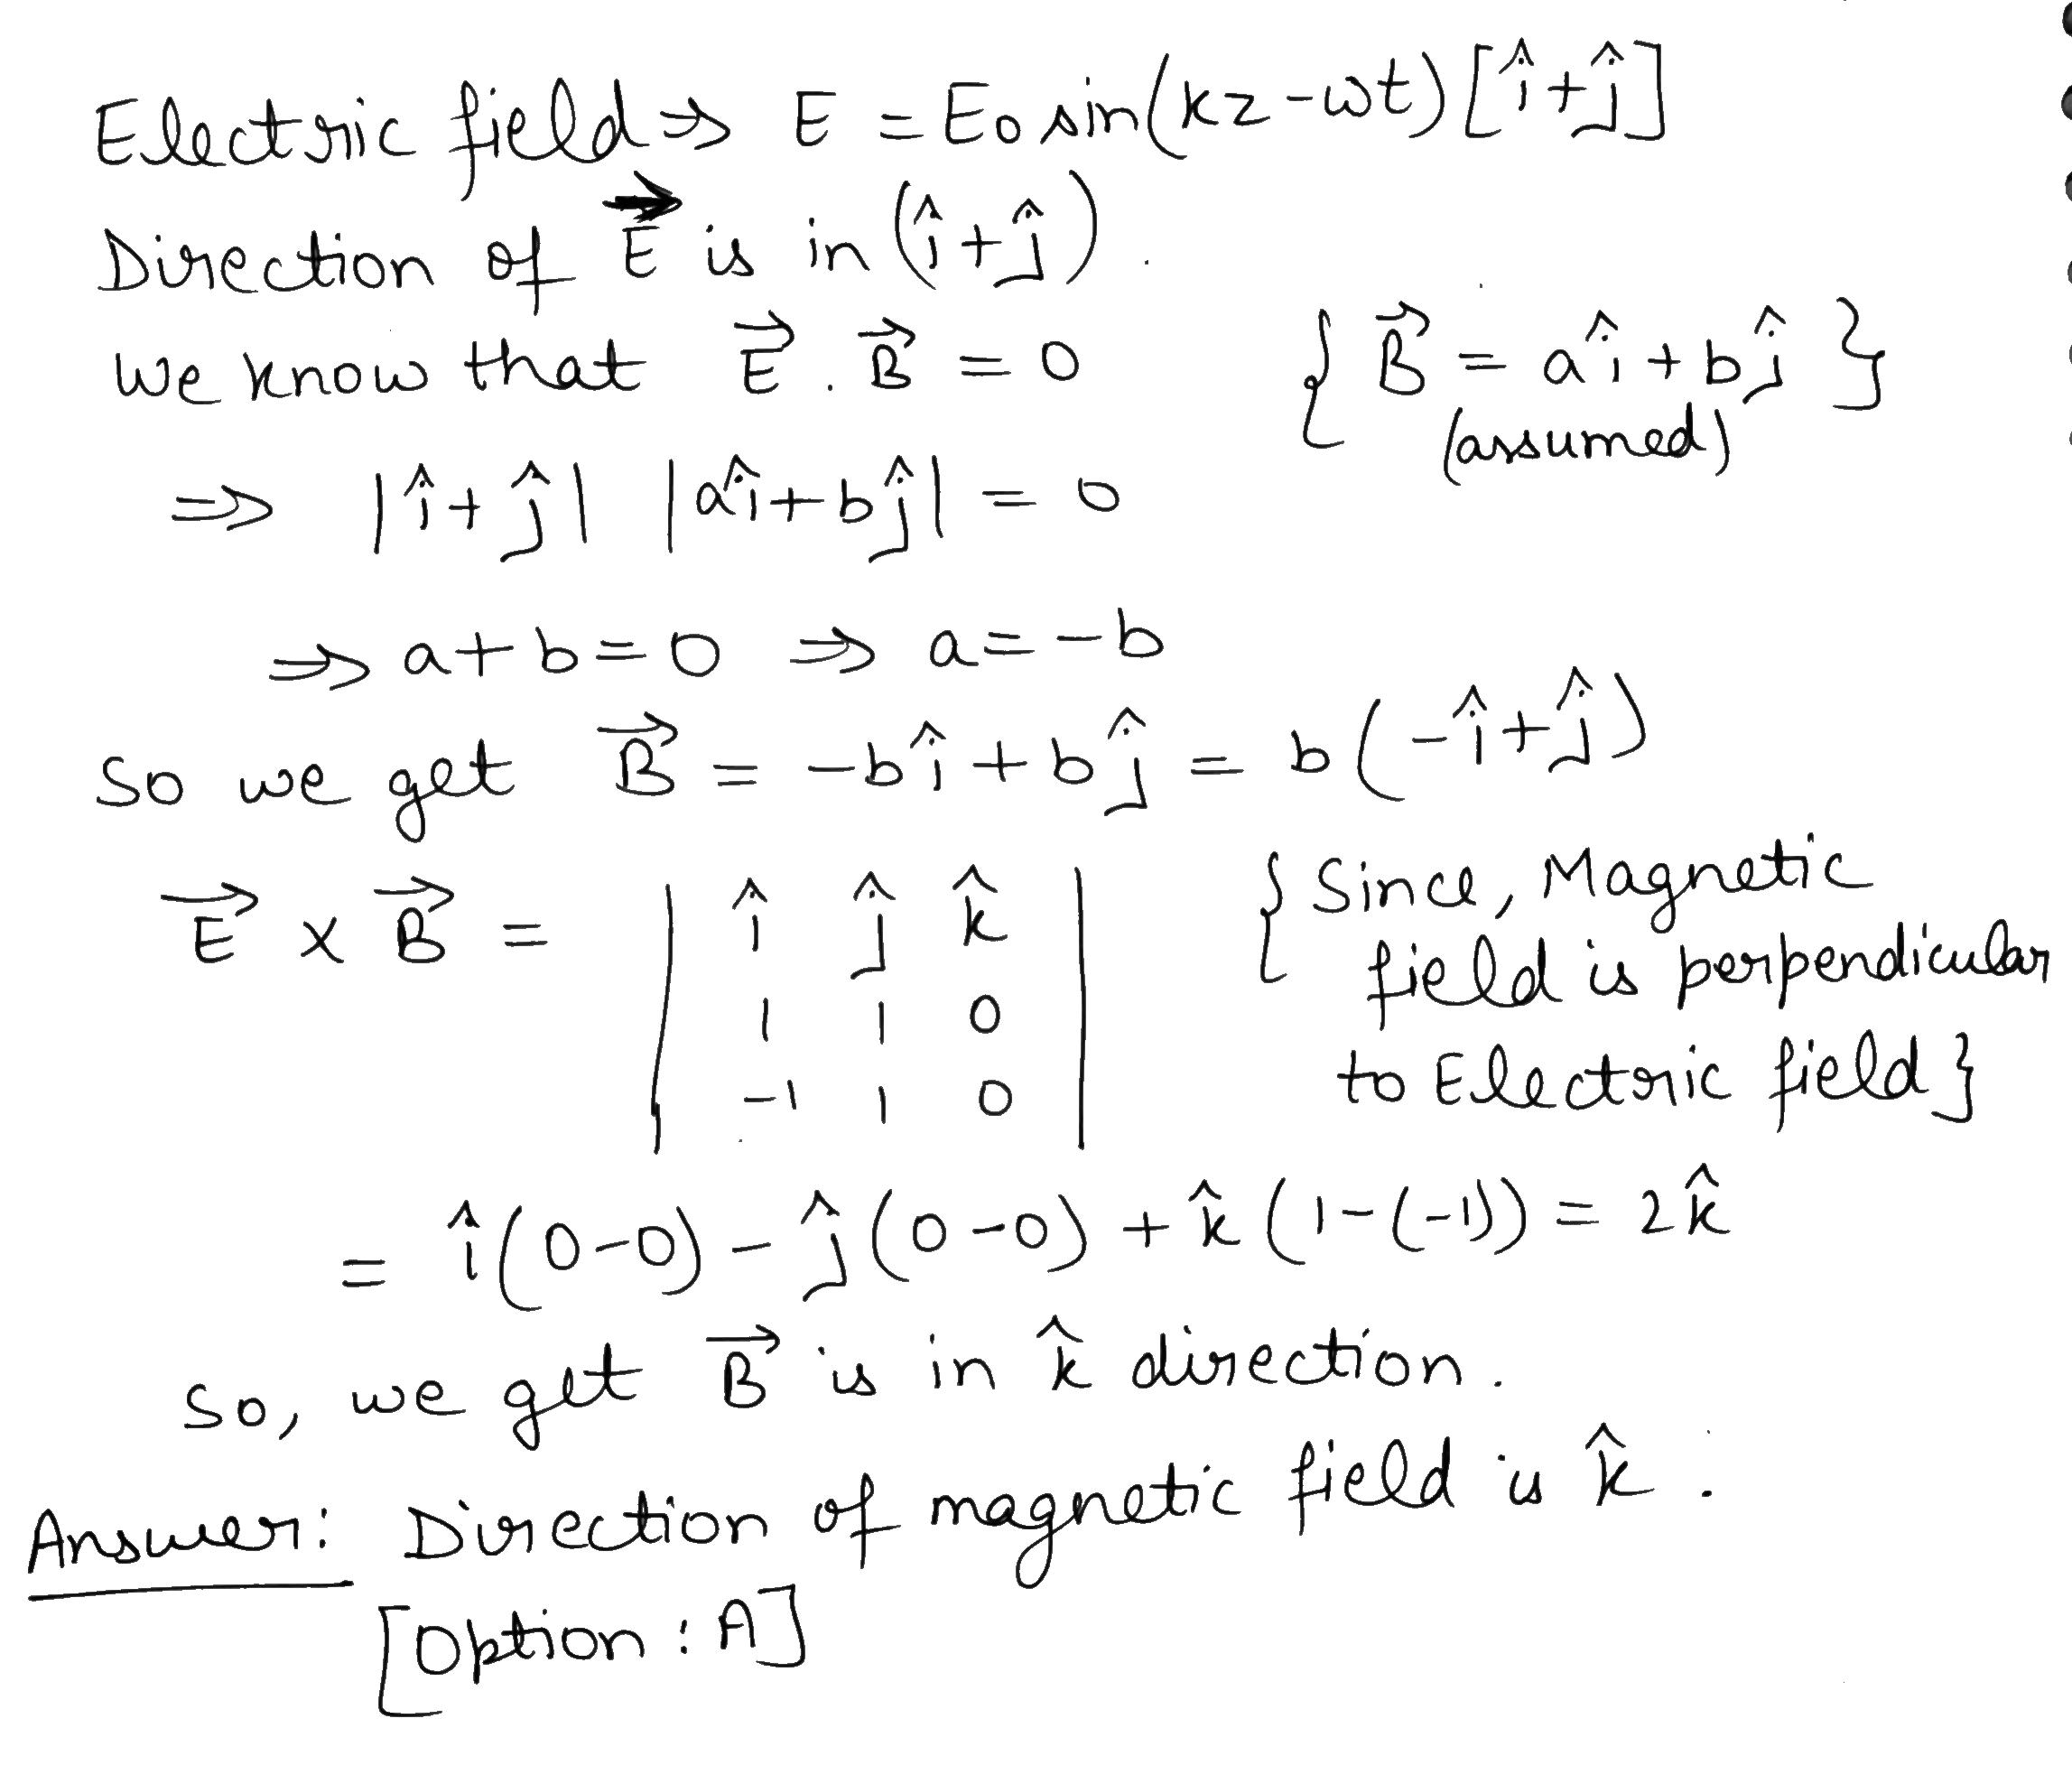 Electric field ⇒ E = E0 sin(kz-ωt) [î+ĵ]
Direction of E⃗ is in (î+ĵ).
We know that E⃗ . B⃗ = 0 { B⃗ = aî + bĵ }
(assumed)
⇒ |î+ĵ| |aî+bĵ| = 0
⇒ a+b=0 ⇒ a=-b
So we get B⃗ = -bî + bĵ = b(-î+ĵ)
E⃗ x B⃗ = | î ĵ k̂ | { Since, Magnetic
field is perpendicular
1 1 0
to Electric field }
-1 1 0
= î(0-0) - ĵ(0-0) + k̂(1-(-1)) = 2k̂
So, we get B⃗ is in k̂ direction.
Answer: Direction of magnetic field is k̂.
[Option : A]